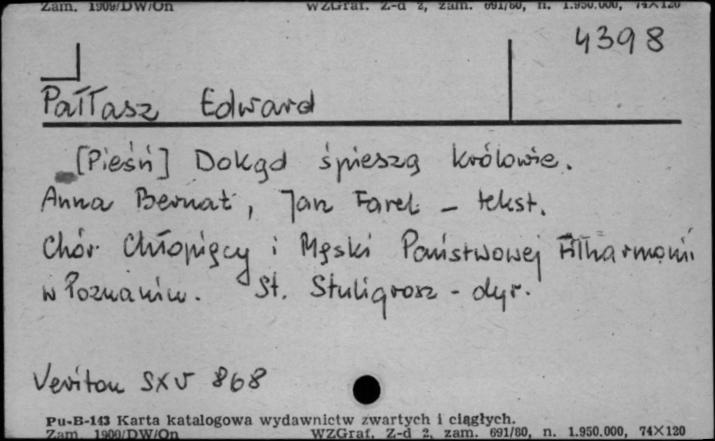 Zam. 1909/DW/On WZGraf. Z-d 2, zam. 691/80, n. 1.950.000, 74×120
4398
Pałłasz Edward
[Pieśń] Dokąd śpieszą królowie.
Anna Bernat, Jan Farel – tekst.
Chór Chłopięcy i Męski Państwowej Filharmonii
w Poznaniu. St. Stuligrosz – dyr.
Veriton SXV 868
Pu-B-143 Karta katalogowa wydawnictw zwartych i ciągłych.
Zam. 1909/DW/On WZGraf. Z-d 2, zam. 691/80, n. 1.950.000, 74×120